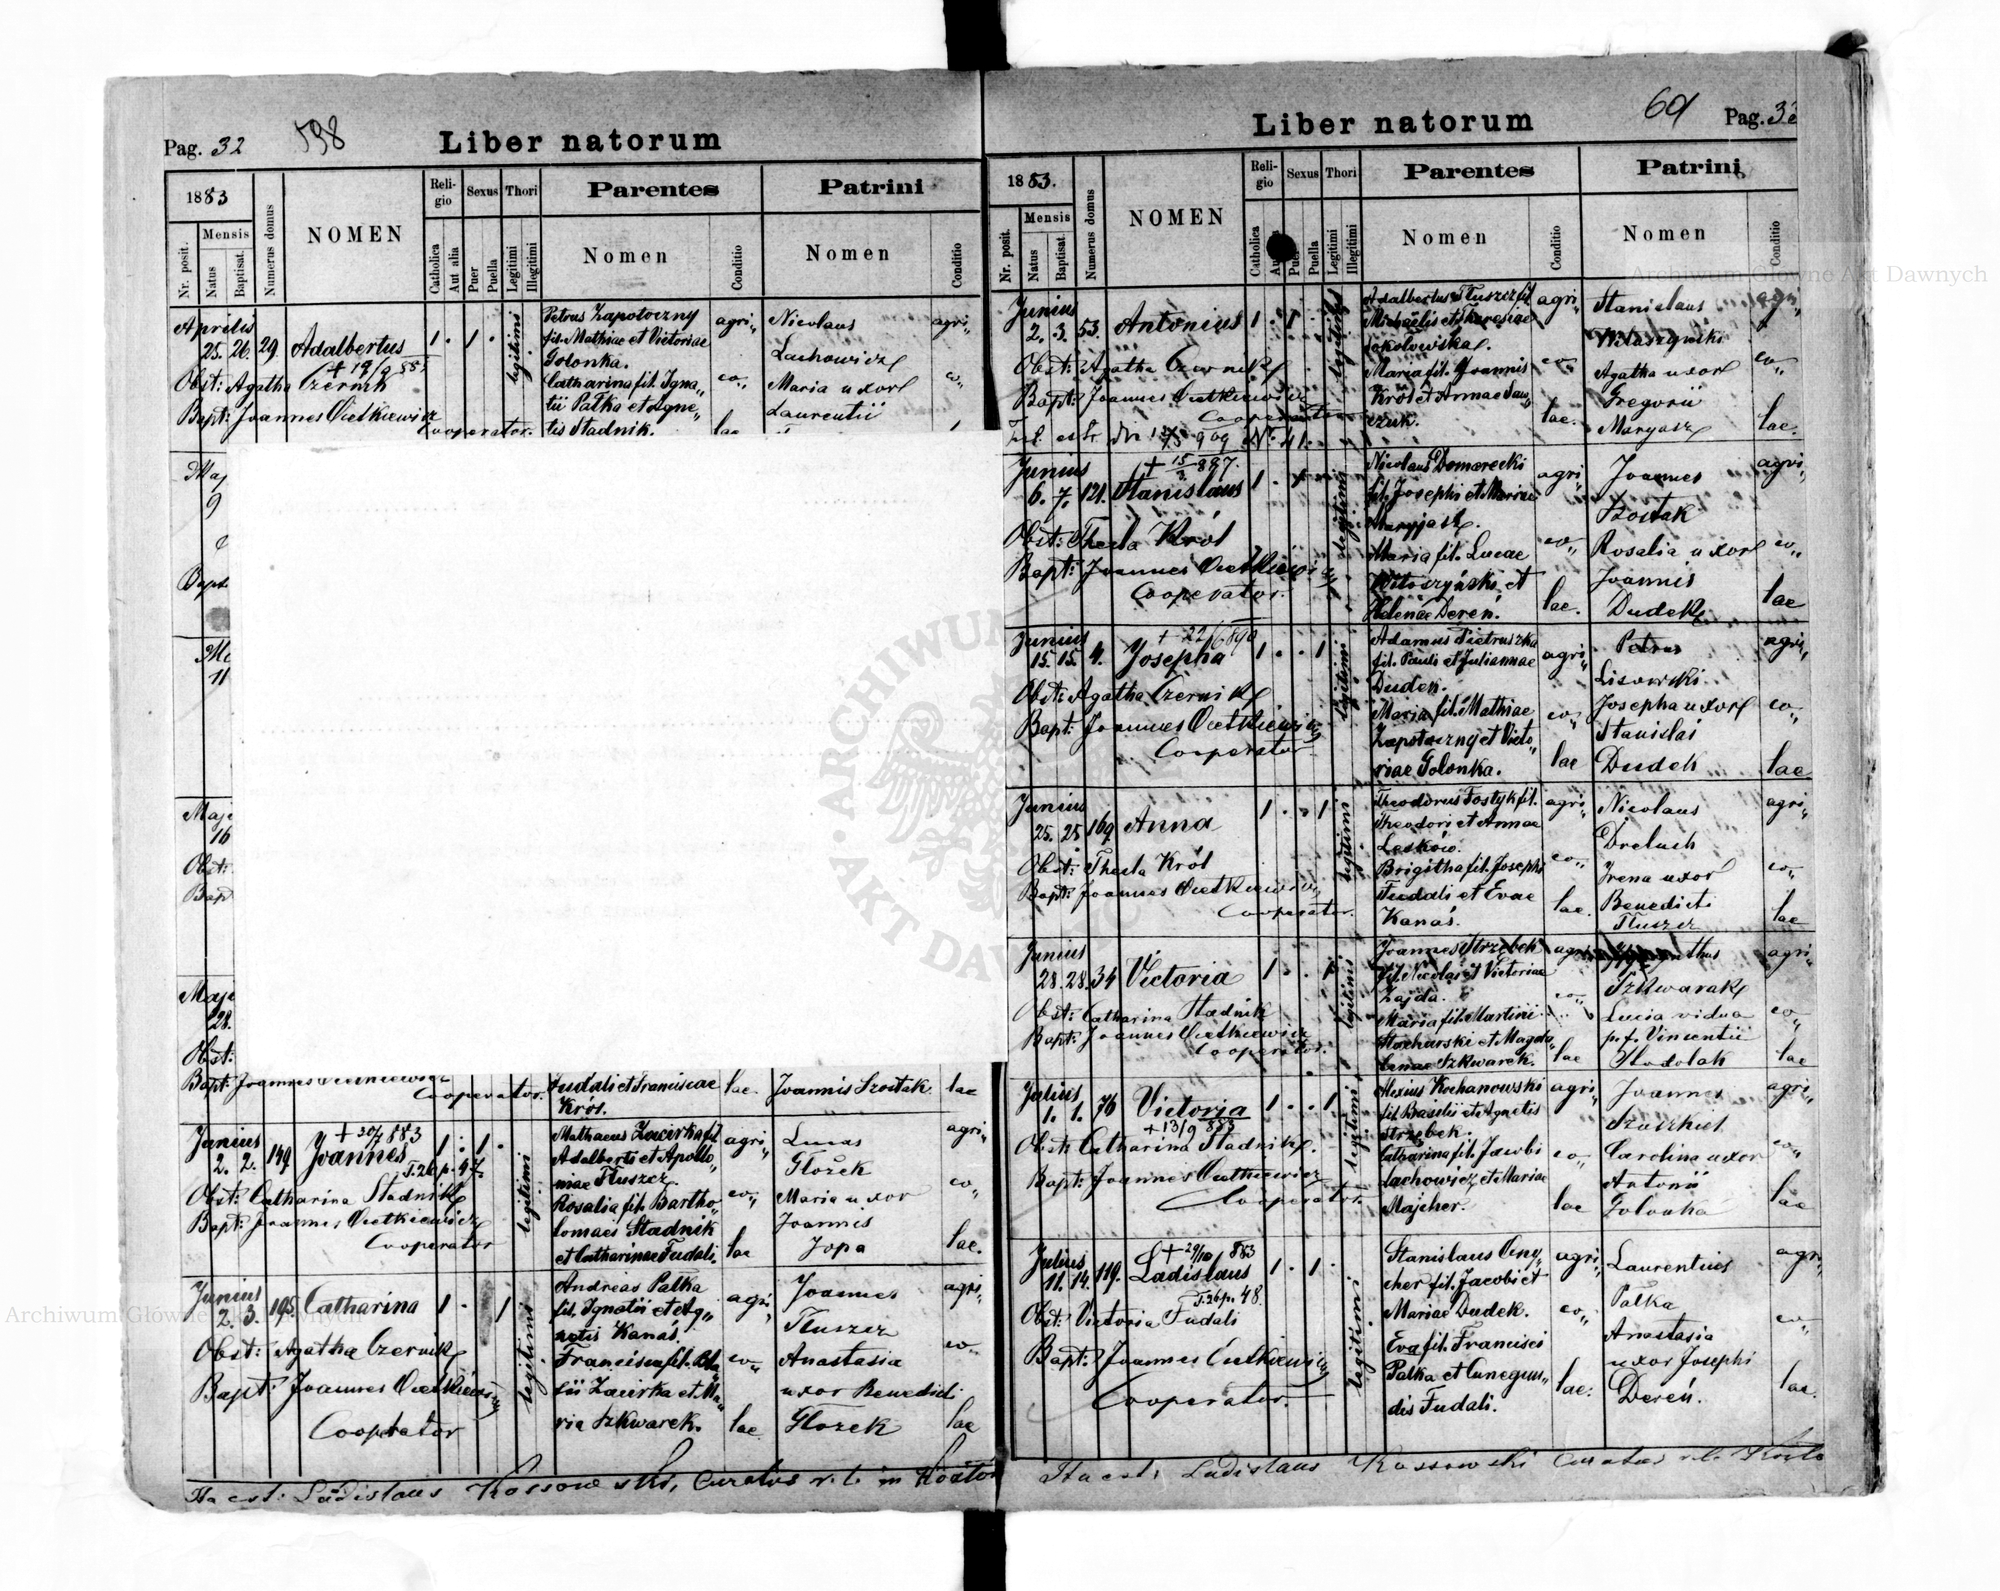 Pag. 32
598
Liber natorum
1883
Numerus domus
NOMEN
Reli-
gio
Sexus
Thori
Parentes
Patrini
Nr. posit.
Mensis
Natus
Baptisat.
Catholica
Aut alia
Puer
Puella
Legitimi
Illegitimi
Nomen
Conditio
Nomen
Conditio
Aprilis
25. 26. 29. Adalbertus 1 . 1 .
legitimi
Obst: Agatha Czernik
Bapt: Joannes Oćetkiewicz
Cooperator.
Petrus Zapotoczny
fil. Mathiae et Victoriae
Golonka.
Catharina fil. Igna„
tii Pałka et Agne„
tis Stadnik.
agri„
co„
lae
Nicolaus
Lachowicz
Maria uxor
Laurentii
agri„
co„
Maj
9
Bapt
11
Maj
16
Obst:
Bapt
Maj
28.
Obst:
Bapt: Joannes
Cooperator.
Fudali et Franciscae
Król.
lae.
Joannis Szostak
lae
Junius
2. 2. 149. Joannes 1 . 1 .
+ 30/7 883
T. 26 p. 47.
legitimi
Obst: Catharina Stadnik
Bapt: Joannes Oćetkiewicz
Cooperator
Mathaeus Zacirka fil.
Adalberti et Apollo„
niae Tłuszcz
Rosalia fil. Bartho„
lomaei Stadnik
et Catharinae Fudali.
agri„
co„
lae
Lucas
Głozek
Maria uxor
Joannis
Jopa
agri„
co„
lae.
Junius
2. 3. 195. Catharina 1 . 1
legitimi
Obst: Agatha Czernik
Bapt: Joannes Oćetkiewicz
Cooperator
Andreas Pałka
fil. Ignatii et Ag„
netis Kanaś.
Francisca fil. Bla„
sii Zacirka et Ma„
ria Szkwarek.
agri„
co„
lae
Joannes
Tłuszcz
Anastasia
uxor Benedicti
Głozek
agri„
co„
lae
Ita est: Ladislaus Kossowski, Curatus r. l. in
Liber natorum
Pag. 33
1883.
Nr. posit.
Mensis
Natus
Baptisat.
Numerus domus
NOMEN
Reli-
gio
Sexus
Thori
Parentes
Patrini
Catholica
Puella
Legitimi
Illegitimi
Nomen
Conditio
Nomen
Conditio
Junius
2. 3. 53. Antonius 1 . 1 .
legitimi
Obst: Agatha Czernik
Bapt: Joannes Oćetkiewicz
Cooperator
Adalbertus Tłuszcz fil.
Michaelis et Theresiae
Sokołowska.
Maria fil. Joannis
Król et Annae
agri„
co„
lae.
Stanislaus
Witoszyński
Agatha uxor
Gregorii
Maryasz
agri„
co„
lae.
Junius
6. 7. 121. Stanislaus 1 .
+ 15/3 897.
legitimi
Obst: Thecla Król
Bapt: Joannes Oćetkiewicz
Cooperator.
Nicolaus Domarecki
fil. Josephi et Mariae
Maryjasz.
Maria fil. Lucae
Witoszyński et
Helenae Dereń.
agri„
co„
lae.
Joannes
Szostak
Rosalia uxor
Joannis
Dudek
agri„
co„
lae
Junius
15. 15. 4. Josepha 1 . . 1
+ 22/6 890
legitimi
Obst: Agatha Czernik
Bapt: Joannes Oćetkiewicz
Cooperator
Adamus Pietruszka
fil. Pauli et Juliannae
Dudek.
Maria fil. Mathiae
Zapotoczny et Victo„
riae Golonka.
agri„
co„
lae
Petrus
Lisowski
Josepha uxor
Stanislai
Dudek
agri„
co„
lae
Junius
25. 25 169 Anna 1 . . 1
legitimi
Obst: Thecla Król
Bapt: Joannes Oćetkiewicz
Cooperator.
Theodorus Fostyk fil.
Theodori et Annae
Leśków.
Brigitha fil. Josephi
Fudali et Evae
Kanaś.
agri„
co„
lae.
Nicolaus
Dreluch
Irena uxor
Benedicti
Tłuszcz
agri„
co„
lae
Junius
28. 28. 34 Victoria 1 . . 1
legitimi
Obst: Catharina Stadnik
Bapt: Joannes Oćetkiewicz
Cooperator.
Joannes Strzębek
fil. Nicolai et Victoriae
Zajda.
Maria fil. Martini
Stachurski et Magda„
lenae Szkwarek.
agri„
co„
lae
Szkwarek
Lucia vidua
p. f. Vincentii
Stodolak
agri„
co„
lae
Julius
1. 1. 76 Victoria 1 . . 1
+ 13/9 883
legitimi
Obst: Catharina Stadnik.
Bapt: Joannes Oćetkiewicz
Cooperator.
Alexius Kochanowski
fil. Basilii et Agnetis
Strzębek.
Catharina fil. Jacobi
Lachowicz et Mariae
Majcher.
agri„
co„
lae
Joannes
Carolina uxor
Antonii
Golonka
agri„
co„
lae
Julius
11. 14. 119. Ladislaus 1 . 1 .
+ 29/10 883
T. 26 p. 48.
legitimi
Obst: Victoria Fudali
Bapt: Joannes Oćetkiewicz
Cooperator.
Stanislaus
fil. Jacobi et
Mariae Dudek.
Eva fil. Francisci
Pałka et Cunegun„
dis Fudali.
agri„
co„
lae.
Laurentius
Pałka
Anastasia
uxor Josephi
Dereń.
agri„
co„
lae.
Ita est: Ladislaus Kossowski Curatus r. l.
ARCHIWUM
AKT DAWNYCH
Archiwum Główne Akt Dawnych
Archiwum Główne Akt Dawnych